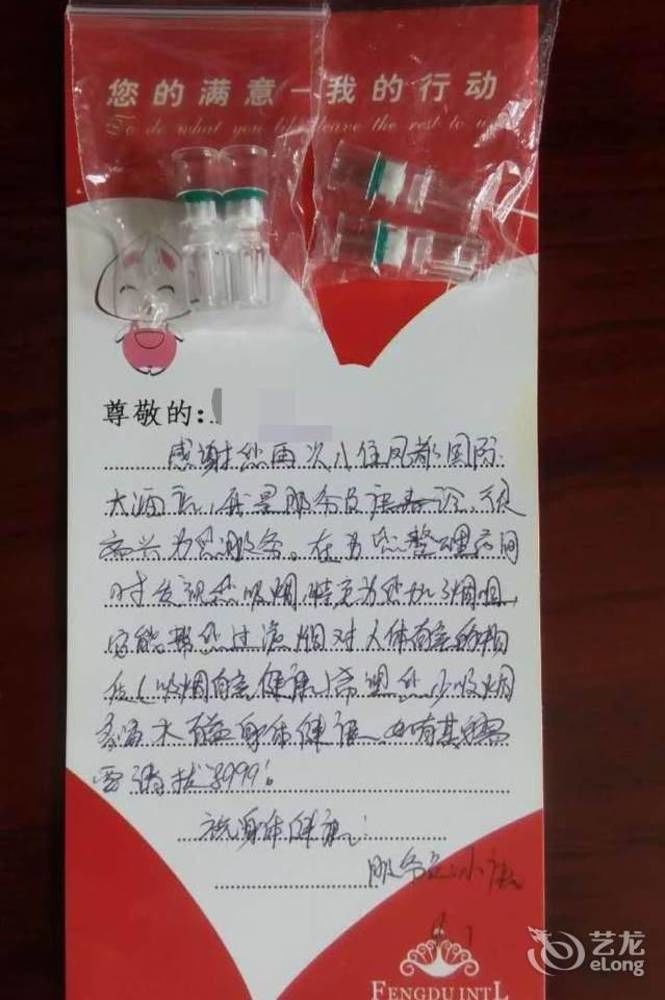 您的满意—我的行动
To do what you like leave the rest to us
尊敬的:
感谢您再次入住凤都国际
大酒店,我是服务员 很
高兴为您服务。在为您整理房间
时发现您吸烟,特意为您加了烟咀,
它能帮您过滤烟对人体有害的物
质(吸烟有害健康)希望您少吸烟
多喝水 身体健康、如有其它需
要请拨打999!
祝身体健康!
服务员:小
FENGDU INT'L
艺龙
eLong